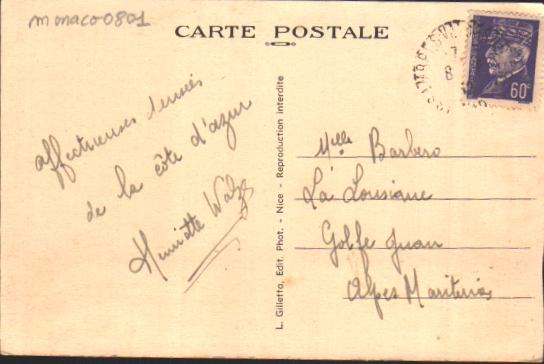 monaco0801
CARTE POSTALE
60c
affectueuses pensées
de la côte d'azur
Henriette
L. Gilletta, Edit. Phot. - Nice - Reproduction interdite
Melle Barbero
La Louisiane
Golfe Juan
Alpes Maritimes